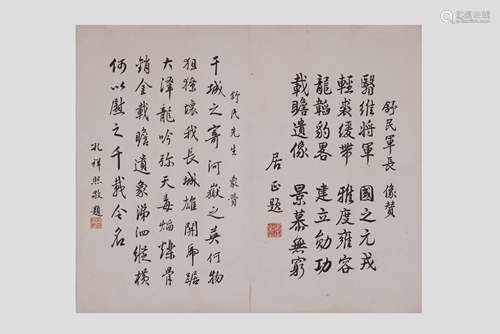 舒民軍長 像贊
繄維將軍 國之元戎
輕裘緩帶 雅度雍容
龍韜豹畧 建立勛功
載瞻遺像 景慕無窮
居正題
舒民先生 象贊
干城之寄河嶽之英何物
狙獠壞我長城雄關虎踞
大澤龍吟弥天毒熖爍骨
銷金載瞻遺象涕泗縱橫
何以慰之千載令名
孔祥熙敬題